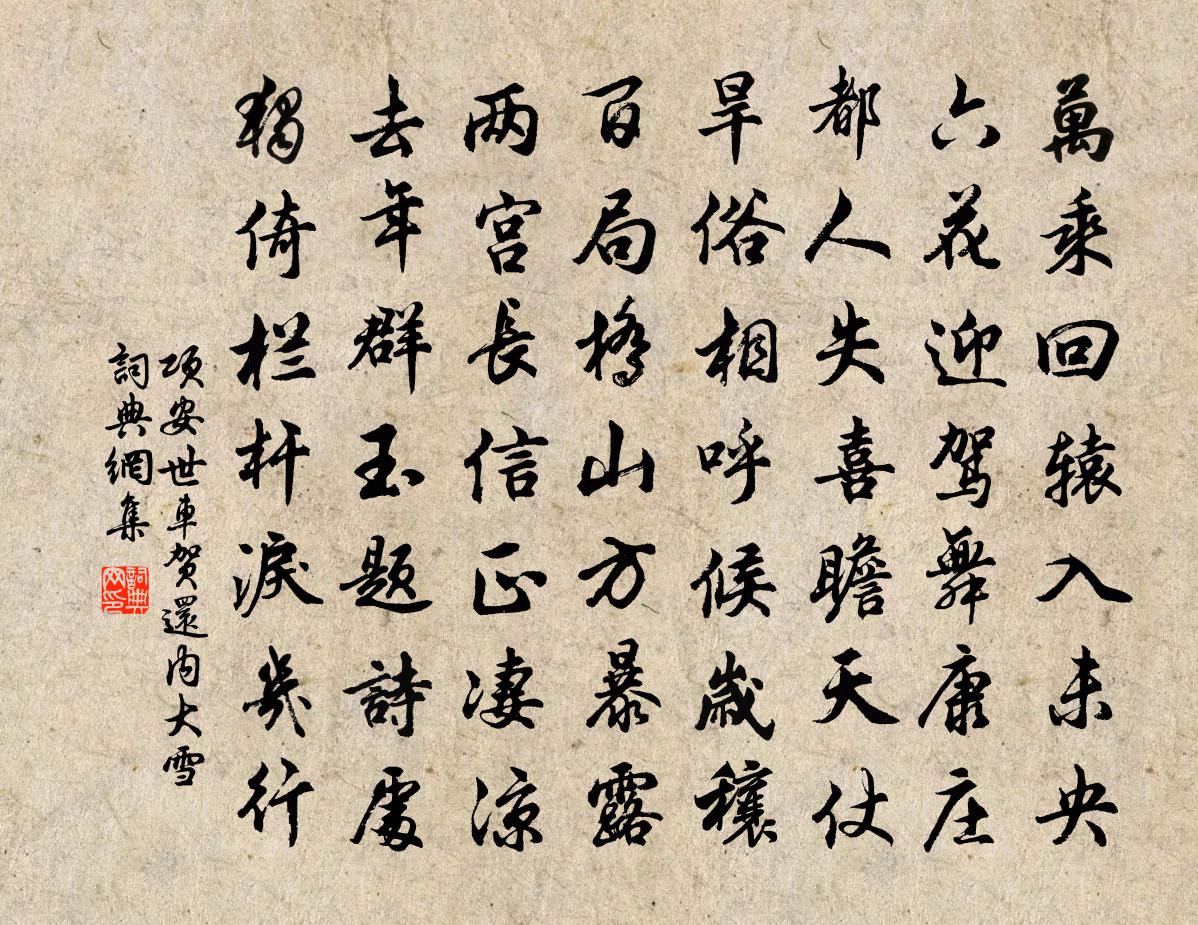 萬乘回辕入未央
六花迎驾舞康庄
都人失喜瞻天仗
旱俗相呼候歲穰
百局橋山方暴露
两宫長信正凄凉
去年群玉题詩處
獨倚栏杆淚幾行
項安世車賀還内大雪
詞典網集
詞典网印